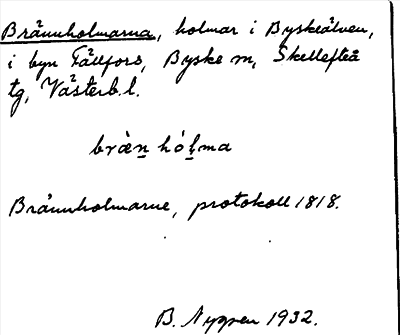 Brännholmarna, holmar i Byskeälven,
i byn Fällfors, Byske sn, Skellefteå
tg, Västerb.l.
brän̲ hól̲ma
Brännholmarne, protokoll 1818.
B. Nygren 1932.